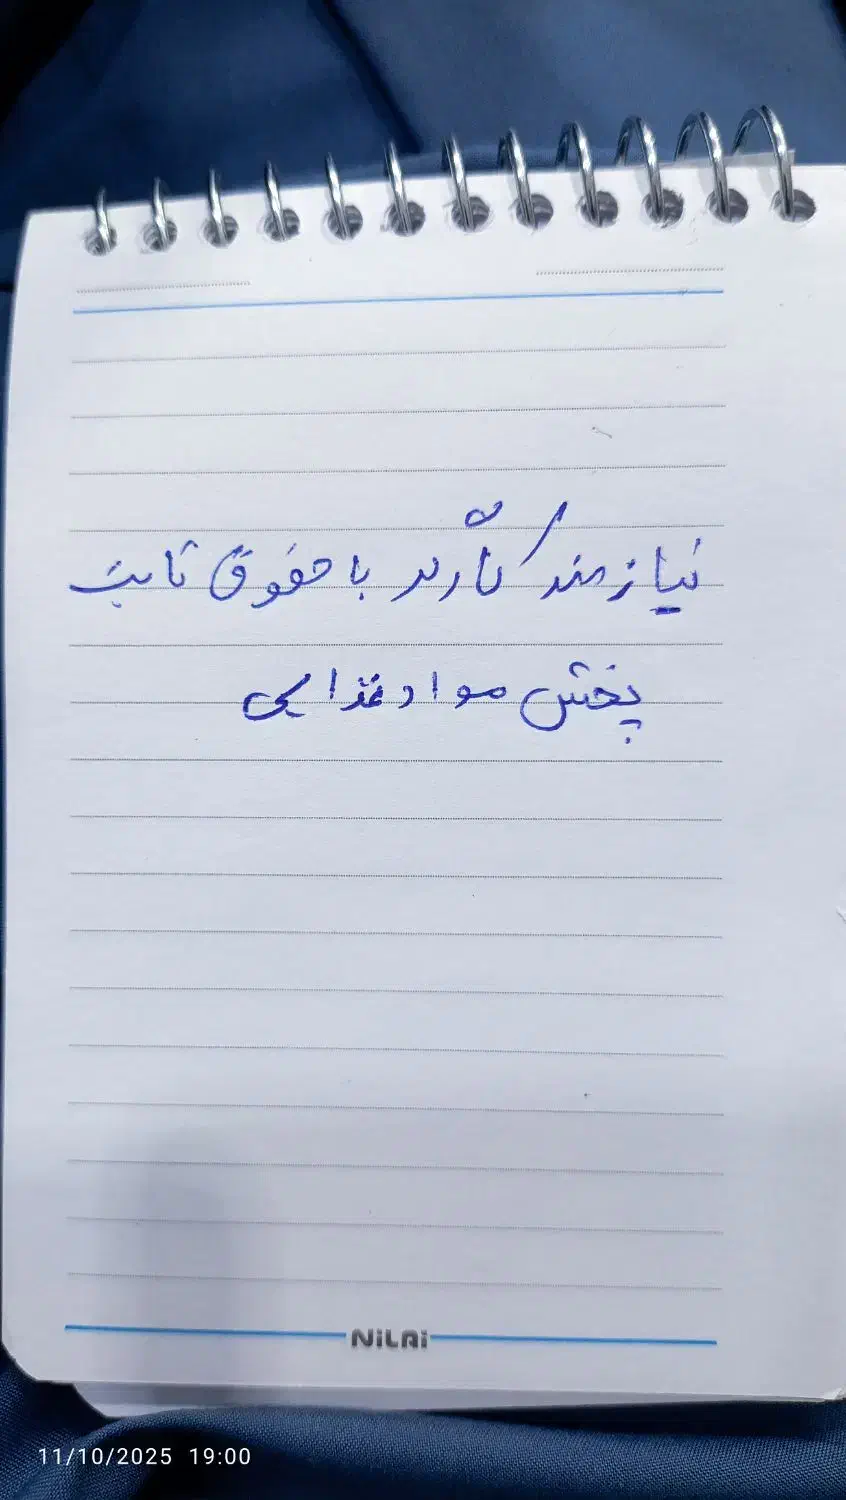 نیازمند با حقوق ثابت
پخش مواد غذایی
NiLAi
11/10/2025 19:00